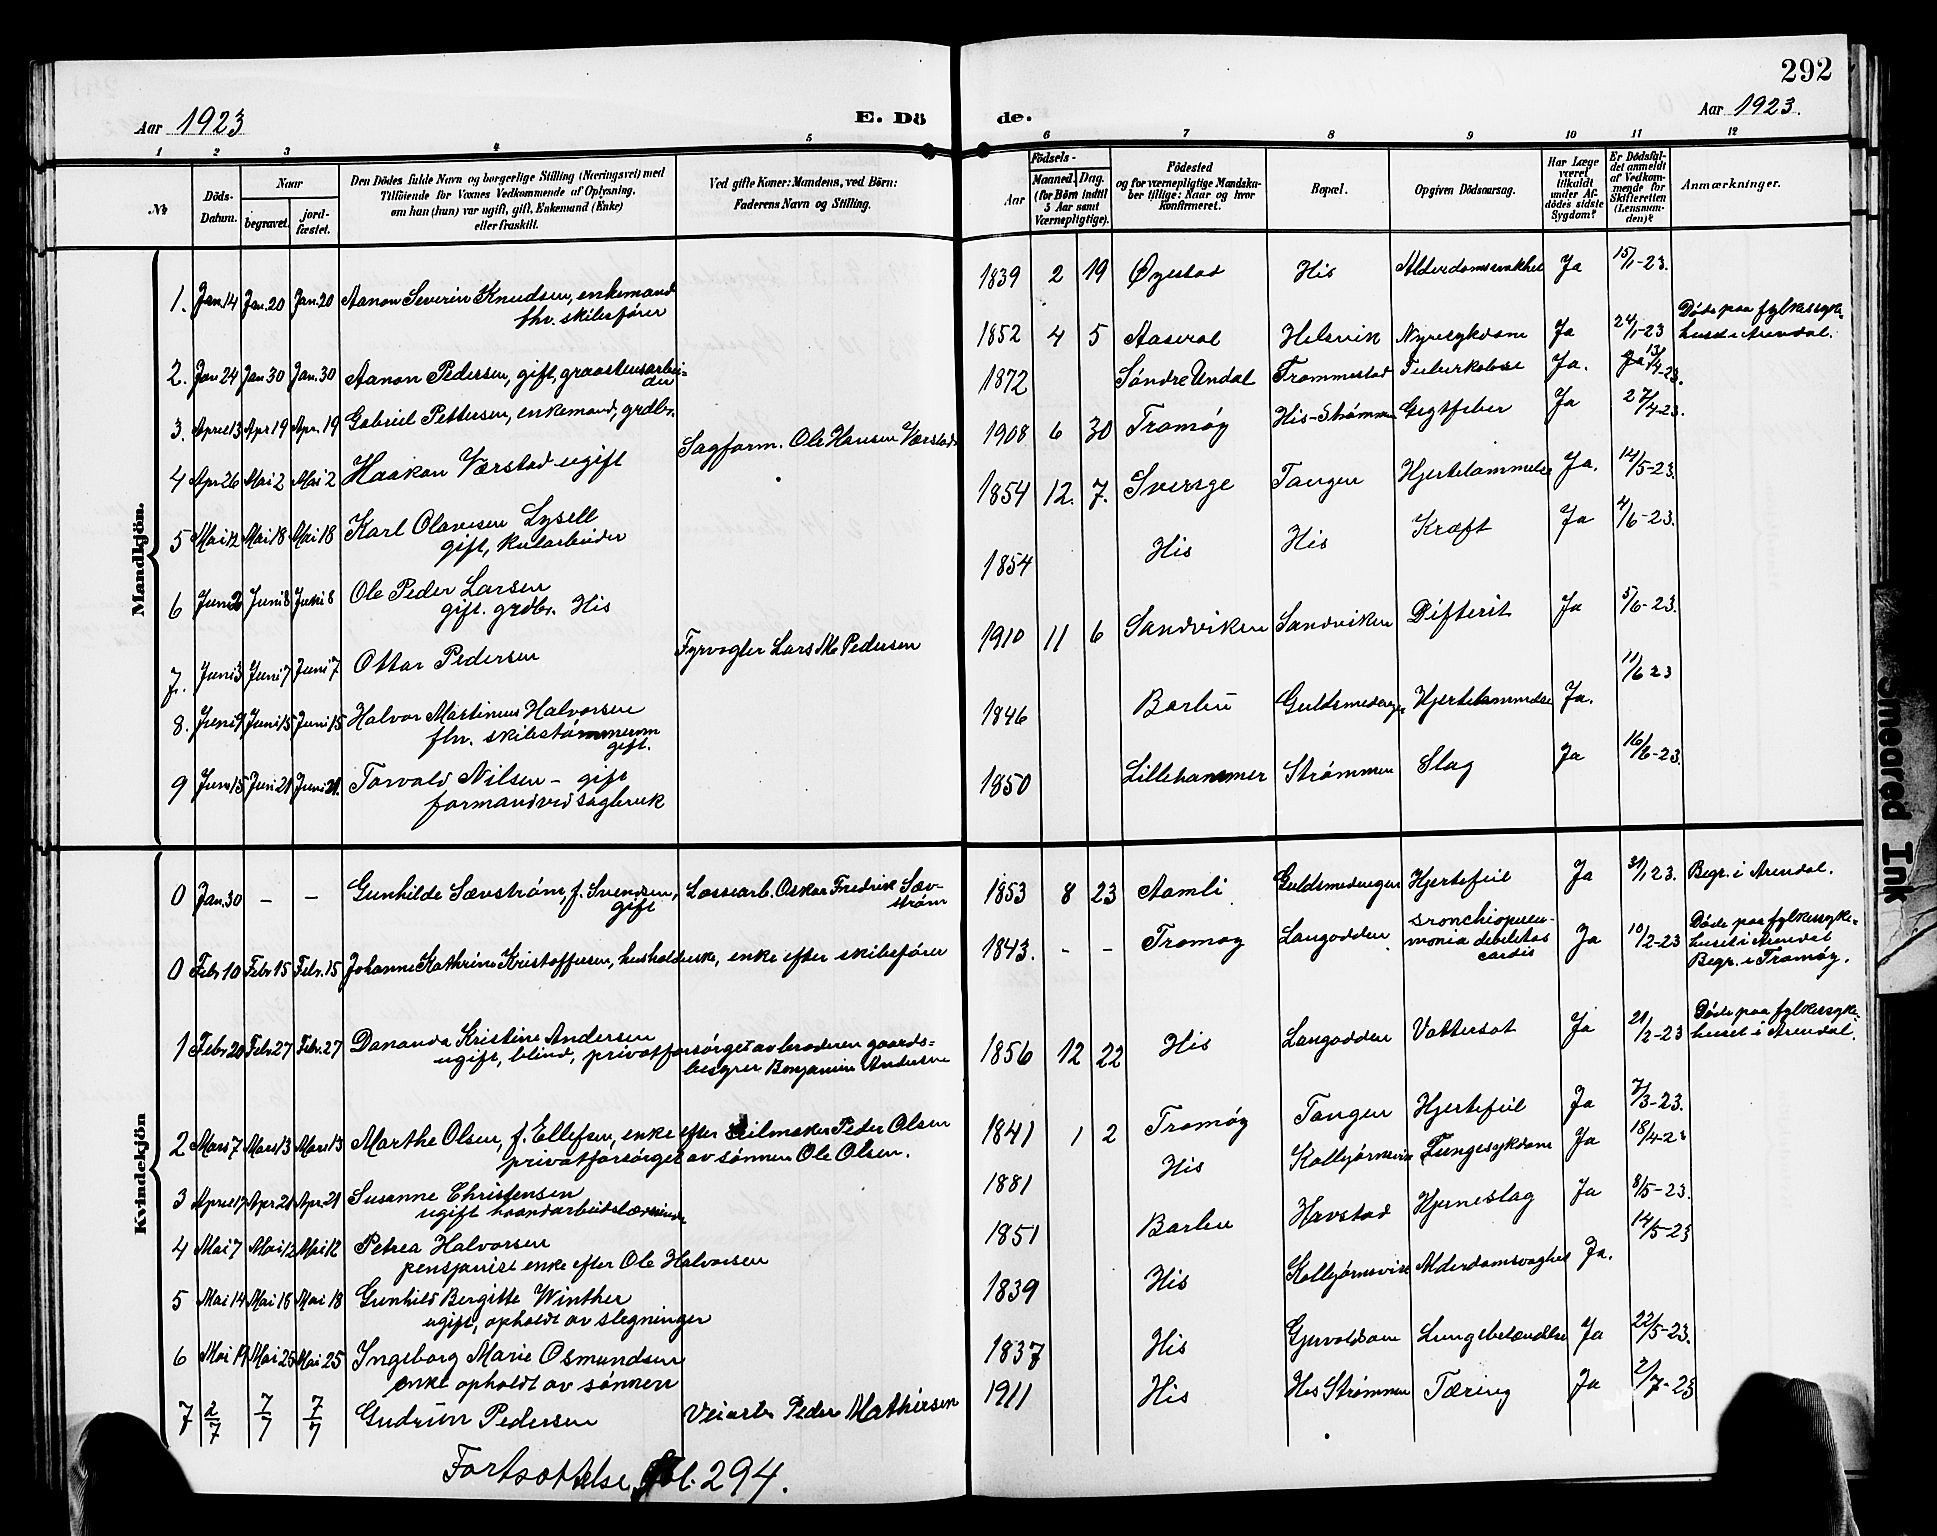 292
Aar 1923
E. Dö
de.
Aar 1923.
1 2 3 4 5 6 7 8 9 10 11 12
No
Döds-
Datum.
Naar
begravet.
jord-
fæstet.
Den Dödes fulde Navn og borgerlige Stilling (Næringsvei) med
Tilföiende for Voxnes Vedkommende af Oplysning,
om han (hun) var ugift, gift, Enkemand (Enke)
eller fraskilt.
Ved gifte Koner: Mandens, ved Börn:
Faderens Navn og Stilling.
Födsels-
Aar
Maaned. Dag.
(for Börn indtil
5 Aar samt
Værnepligtige).
Födested
og for værnepligtige Mandska-
ber tillige: Naar og hvor
konfirmeret.
Bopæl.
Opgiven Dödsaarsag.
Har Læge
været
tilkaldt
under Af-
dödes sidste
Sygdom?
Er Dödsfal-
det anmeldt
af Vedkom-
mende for
Skifteretten
(Lensman-
den)?
Anmærkninger.
Mandkjön.
1. Jan.14 Jan.20 Jan.20 Aanon Severin Knudsen, enkemand
fhv. skibsfører
1839 2 19 Øyestad His Alderdomssvakhet Ja 15/1-23.
2. Jan 24 Jan 30 Jan.30 Aanon Pedersen, gift, graastensarbei-
der
1852 4 5 Aaseral Helsvik Nyresykdom Ja 24/1-23 Døde paa fylkessyke-
huset i Arendal.
3. April 13 Apr 19 Apr. 19 Gabriel Pettersen, enkemand, grdbr.
1872 Søndre Undal Trommestad Tuberkulose Ja. 13/4-23.
4 Apr 26 Mai 2 Mai 2 Haakon Værstad ugift
Sagform. Ole Hansen Værstad
1908 6 30 Tromøy His-Strømmen Gigtfeber Ja 27/4-23.
5 Mai 12 Mai 18 Mai 18 Karl Olavesen Lysell
gift, kularbeider
1854 12. 7. Sverige Tangen Hjertelammelse Ja. 14/5-23.
6 Juni 2 Juni 8 Juni 8 Ole Peder Larsen
gift. grdbr. His
1854 His His Kræft Ja 4/6-23.
7. Juni 3 Juni 7 Juni 7 Ottar Pedersen
Fyrvogter Lars M. Pedersen
1910 11 6 Sandviken Sandviken Difterit Ja 5/6-23.
8. Juni 9 Juni 15 Juni 15 Halvor Martinius Halvorsen
fhv. skibstømmerm
gift.
1846 Barbu Guldsmedengen Hjertelammelse Ja. 11/6 23
9 Juni 15 Juni 21 Juni 21. Torvald Nilsen - gift
formand ved sagbruk
1850 Lillehammer Strømmen Slag Ja 16/6-23.
Kvindekjön
0 Jan.30 - - Gunhilde Sævstrøm, f. Svendsen,
gift
Lossearb. Oskar Fredrik Sæv-
strøm
1853 8 23 Aamli Guldsmedengen Hjertefeil Ja 31/1 23. Begr. i Arendal.
0 Febr 10 Febr 15 Febr. 15 Johanne Kathrine Kristoffersen, husholderske, enke efter skibsfører
1843. - - Tromøy Langodden Bronchiopneu-
monia debilitas
cordis
Ja 10/2-23 Døde paa fylkessyke-
huset i Arendal
Begr. i Tromøy.
1 Febr 20 Febr 27 Febr. 27 Dananda Kristine Andersen
ugift, blind, privatforsørget av broderen gaard-
besyrer Benjamin Andersen
1856 12 22 His Langodden Vattersot Ja 21/2-23 Døde paa fylkessyke-
huset i Arendal.
2 Mars 7 Mars 13 Mars 13 Marthe Olsen, f. Ellefsen, enke efter seilmaker Peder Olsen
privatforsørget av sønnen Ole Olsen.
1841 1 2 Tromøy Tangen Hjertefeil Ja 7/3-23.
3 April 17 Apr 21 Apr. 21 Susanne Christensen
ugift haandarbeidslærerinde
1881 His Kolbjørnsvik Lungesykdom Ja 18/4-23
4 Mai 7 Mai 12 Mai 12 Petrea Halvorsen
pensjonist enke efter Ole Halvorsen
1851 Barbu Havstad Hjerneslag Ja 8/5-23.
5 Mai 14 Mai 18 Mai 18 Gunhild Bergitte Winther
ugift, opholdt av slegninger
1839 His Kolbjørnsvik Alderdomsvaghet Ja. 14/5-23
6 Mai 19 Mai 25 Mai 25 Ingeborg Marie Osmundsen
enke opholdt av sønnen
1837 His Gjervoldsøen Lungebetændelse Ja 22/5-23.
7 2/7 7/7 7/7 Gudrun Pedersen Veiarb. Peder Mathiesen
1911 His His Strømmen Tæring Ja 2/7-23
Fortsættelse fol. 294.
Smeared Ink